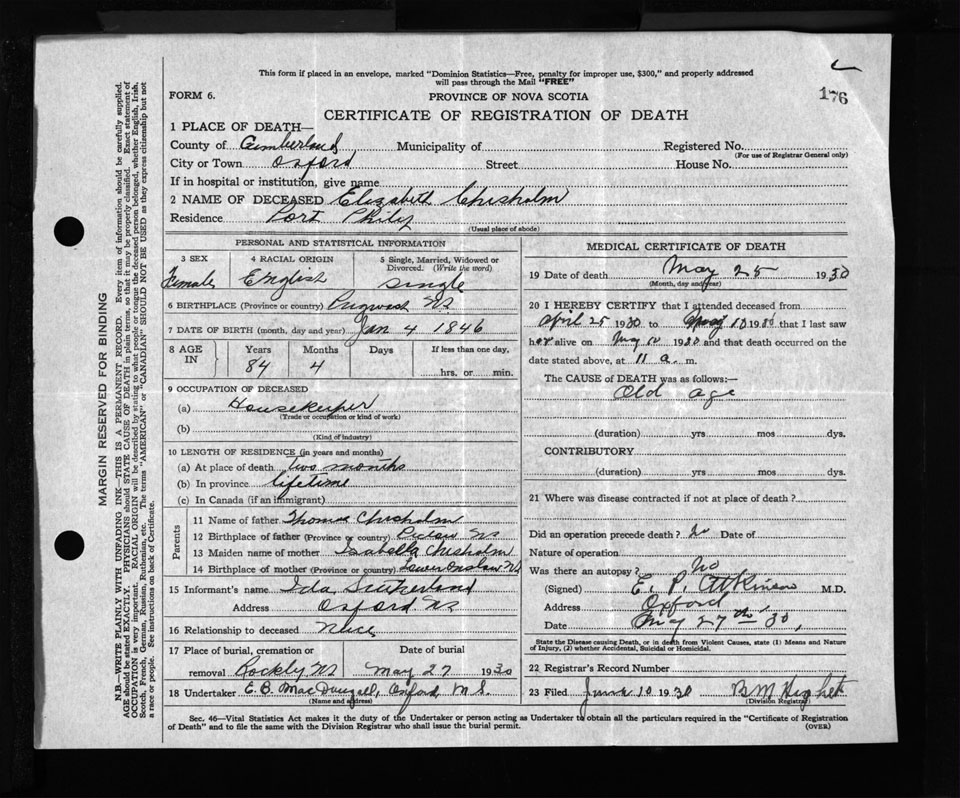 This form if placed in an envelope, marked "Dominion Statistics—Free, penalty for improper use, $300," and properly addressed
will pass through the Mail "FREE"
176
FORM 6.
PROVINCE OF NOVA SCOTIA
CERTIFICATE OF REGISTRATION OF DEATH
1 PLACE OF DEATH—
County of Cumberland Municipality of Registered No.
(For use of Registrar General only)
City or Town Oxford Street House No.
If in hospital or institution, give name
2 NAME OF DECEASED Elizabeth Chisholm
Residence Port Philip
(Usual place of abode)
PERSONAL AND STATISTICAL INFORMATION
3 SEX 4 RACIAL ORIGIN 5 Single, Married, Widowed or
Divorced. (Write the word)
Female English Single
6 BIRTHPLACE (Province or country) Pugwash NS
7 DATE OF BIRTH (month, day and year) Jan 4 1846
8 AGE IN Years Months Days If less than one day,
84 4 hrs. or min.
9 OCCUPATION OF DECEASED
(a) Housekeeper
(Trade or occupation or kind of work)
(b)
(Kind of industry)
10 LENGTH OF RESIDENCE (in years and months)
(a) At place of death two months
(b) In province lifetime
(c) In Canada (if an immigrant)
Parents
11 Name of father Thomas Chisholm
12 Birthplace of father (Province or country) Pictou NS
13 Maiden name of mother Isabella Chisholm
14 Birthplace of mother (Province or country) Lower Onslow NS
15 Informant's name Ida Sutherland
Address Oxford NS
16 Relationship to deceased Niece
17 Place of burial, cremation or Date of burial
removal Rockly NS May 27 1930
18 Undertaker E. B. MacDougall, Oxford, N.S.
(Name and address)
MEDICAL CERTIFICATE OF DEATH
19 Date of death May 25 1930
(Month, day and year)
20 I HEREBY CERTIFY that I attended deceased from
April 25 1930 to May 10 1930 that I last saw
her alive on May 10 1930 and that death occurred on the
date stated above, at 11 a. m.
The CAUSE of DEATH was as follows:—
Old age
(duration) yrs mos dys.
CONTRIBUTORY
(duration) yrs mos dys.
21 Where was disease contracted if not at place of death?
Did an operation precede death? No Date of
Nature of operation
Was there an autopsy? No
(Signed) E. P. Atkinson M.D.
Address Oxford
Date May 27th 30,
State the Disease causing Death, or in death from Violent Causes, state (1) Means and Nature
of Injury, (2) whether Accidental, Suicidal or Homicidal.
22 Registrar's Record Number
23 Filed June 10 1930 B M
(Division Registrar)
Sec. 46—Vital Statistics Act makes it the duty of the Undertaker or person acting as Undertaker to obtain all the particulars required in the "Certificate of Registration
of Death" and to file the same with the Division Registrar who shall issue the burial permit. (OVER)
MARGIN RESERVED FOR BINDING
N.B.—WRITE PLAINLY WITH UNFADING INK—THIS IS A PERMANENT RECORD. Every item of information should be carefully supplied.
AGE should be stated EXACTLY. PHYSICIANS should STATE CAUSE OF DEATH in plain terms, so that it may be properly classified. Exact statement of
OCCUPATION is very important. RACIAL ORIGIN will be described by stating to what people or tongue the deceased person belonged, whether English, Irish,
Scotch, French, German, Russian, Ruthenian, etc. The terms "AMERICAN" or "CANADIAN" SHOULD NOT BE USED as they express citizenship but not
a race or people. See instructions on back of Certificate.